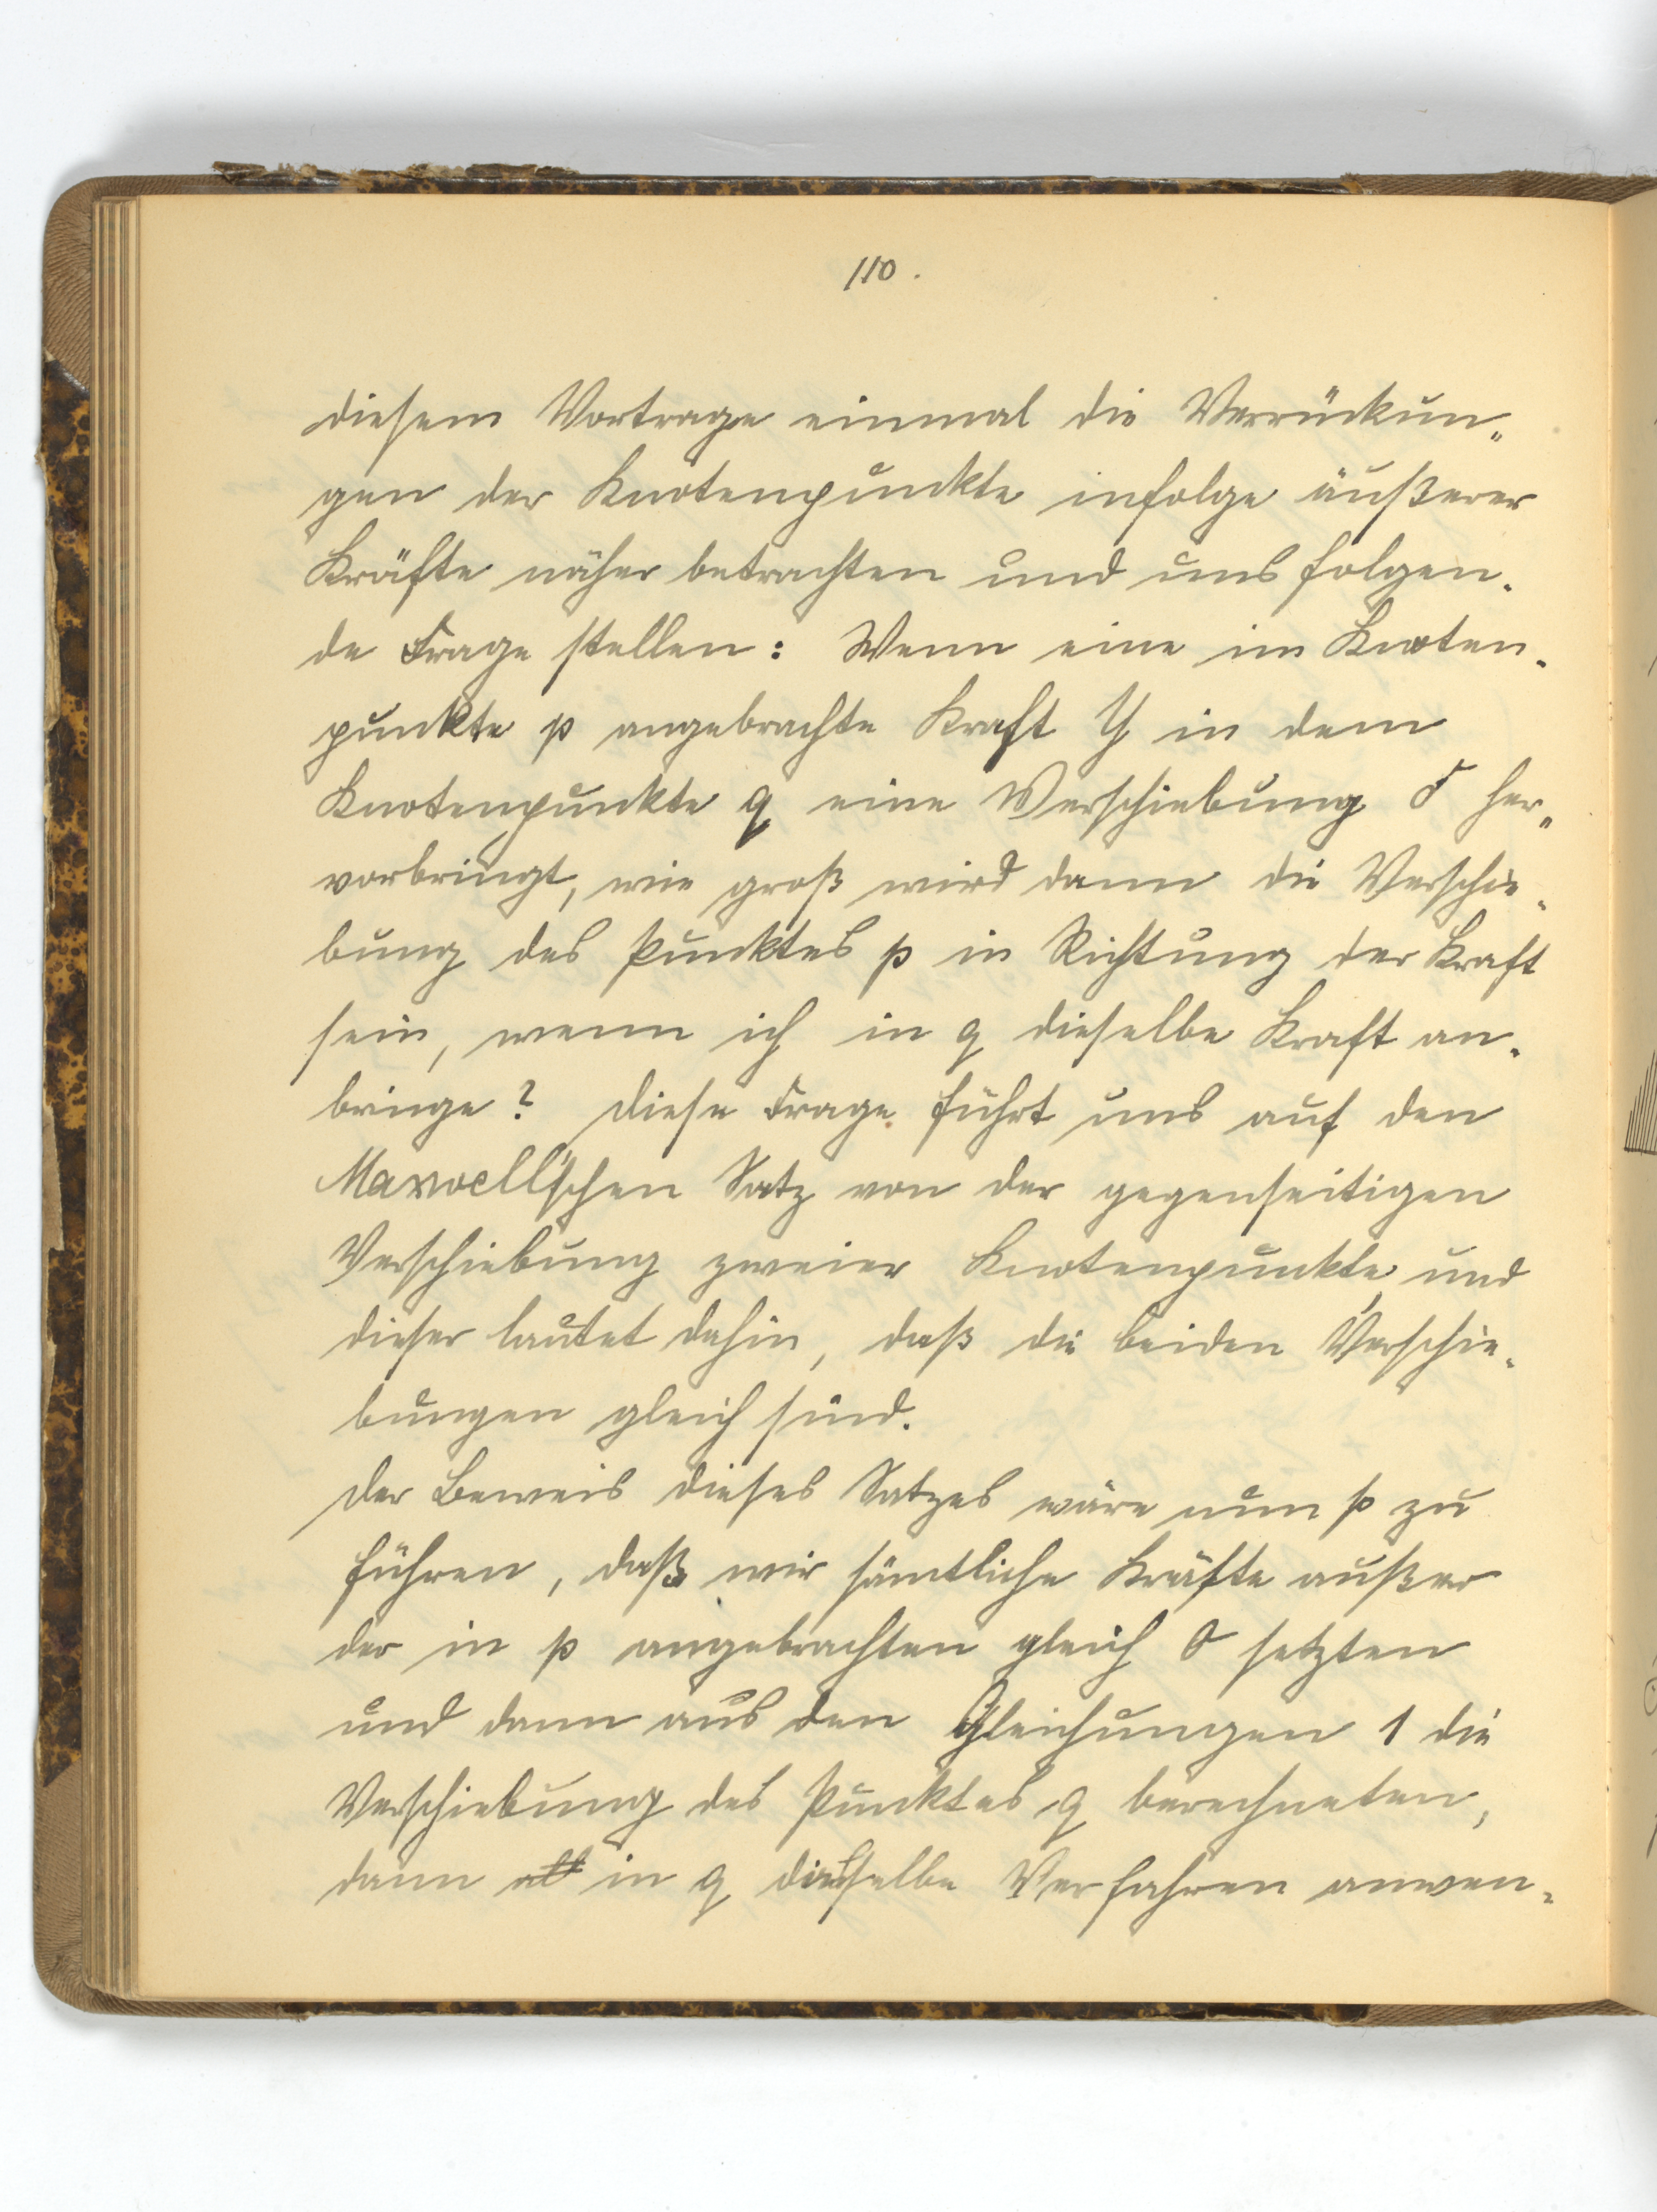 110.
diesem Vortrage einmal die Verrückun„
gen der Knotenpunkte infolge äußerer
Kräfte näher betrachten und uns folgen-
de Frage stellen: Wenn eine im Knoten-
punkte p angebrachte Kraft Y in dem
Knotenpunkte q eine Verschiebung δ her„
vorbringt, wie groß wird dann die Verschie-
bung des Punktes p in Richtung der Kraft
sein, wenn ich in q dieselbe Kraft an-
bringe? Diese Frage führt uns auf den
Maxwell'schen Satz von der gegenseitigen
Verschiebung zweier Knotenpunkte, und
dieser lautet dahin, daß die beiden Verschie-
bungen gleich sind.
Der Beweis dieses Satzes wäre nun so zu
führen, daß wir sämtliche Kräfte außer
der in p angebrachten gleich 0 setzten
und dann aus den Gleichungen 1 die
Verschiebung des Punktes q berechneten,
dann in q dasselbe Verfahren anwen-